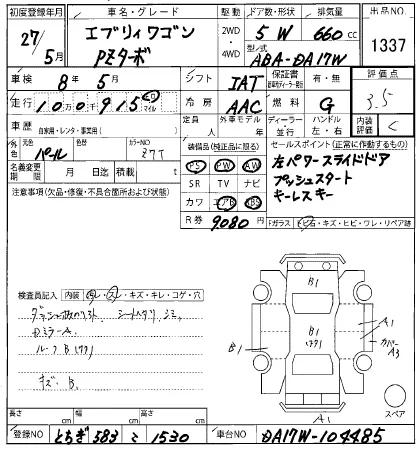 初度登録年月
27/5月
車名・グレード
エブリィワゴン
PZターボ
駆動
2WD
・
4WD
ドア数・形状
5 W
排気量
660 cc
型式
ABA-DA17W
出品NO
1337
車検
8年 5月
シフト
IAT
保証書
有・無
評価点
3.5
走行
100915
km
マイル
冷房
AAC
燃料
G
車歴
自家用・レンタ・事業用( )
定員
人
外車モデル
年
ディーラー
並行
ハンドル
左・右
内装
評価
C
外色
元色
パール
色替
カラーNO
Z7T
装備品(純正品に限る)
PS PW AW
SR TV ナビ
カワ エアB ABS
R券 9080円
セールスポイント(正常に作動するもの)
左パワースライドドア
プッシュスタート
キーレスキー
名義変更
期限
月 日迄
積載
t
注意事項(欠品・修復・不具合箇所および状態)
Fガラス
ヒビ石・キズ・ヒビ・ワレ・リペア跡
検査員記入
内装
・スレ・キズ・キレ・コゲ・穴
シートヘタリ、シミ
DミラーA
ルーフB(ワク)
キズ・B
B1
B1
(ワク)
B1
A1
カバー
A3
A1
スペア
長さ
cm
幅
cm
高さ
cm
登録NO
とちぎ 583 て 1530
車台NO
DA17W-104485